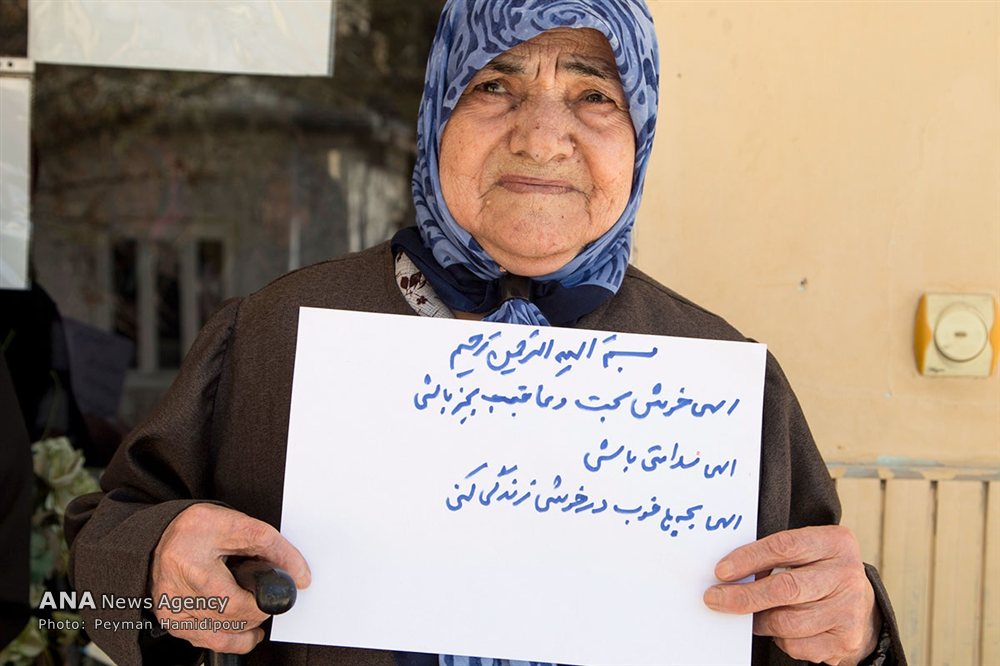 بسم الله الرحمن رحیم
الهی خوش بخت و عاقبت بخیر باشی
الهی سلامتی باشی
الهی بچه ها خوب در خوشی زندگی کنی
ANA News Agency
Photo: Peyman Hamidipour